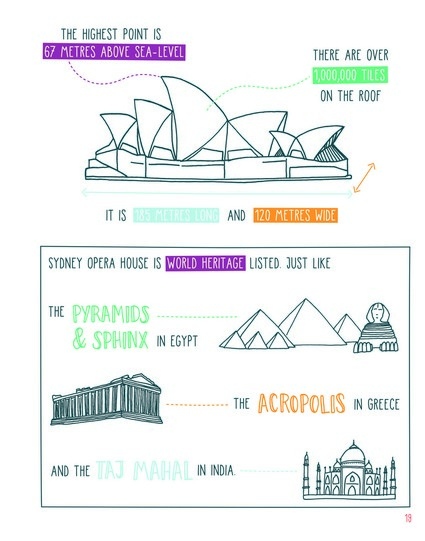 THE HIGHEST POINT IS
67 METRES ABOVE SEA-LEVEL
THERE ARE OVER
1,000,000 TILES
ON THE ROOF
IT IS 185 METRES LONG AND 120 METRES WIDE
SYDNEY OPERA HOUSE IS WORLD HERITAGE LISTED. JUST LIKE
THE PYRAMIDS
& SPHINX IN EGYPT
THE ACROPOLIS IN GREECE
AND THE TAJ MAHAL IN INDIA.
19